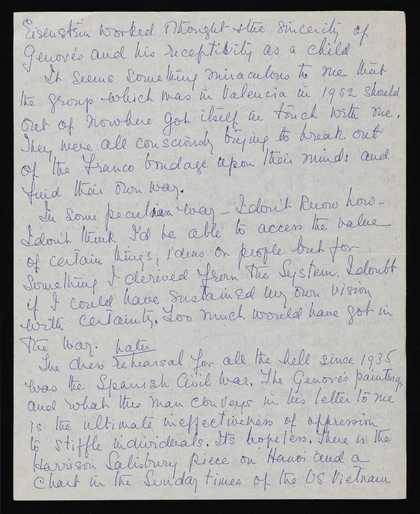 Eisenstein worked thought & the sincerity of
Genovés and his receptibility as a child
It seems something miraculous to me that
the group which was in Valencia in 1952 should
out of nowhere got itself in touch with me.
They were all consciously trying to break out
of the Franco bondage upon their minds and
find their own way.
In some peculiar way – I don't know how –
I don't think I'd be able to access the value
of certain things, ideas or people but for
something I derived from The System. I doubt
if I could have sustained my own vision
with certainty. Too much would have got in
the way. Later
The dress rehearsal for all the hell since 1935
was the Spanish Civil War. The Genovés paintings
and what this man conveys in his letter to me
is the ultimate ineffectiveness of oppression
to stiffle individuals. Its hopeless. There is the
Harrison Salisbury piece on Hanoi and a
chart in the Sunday times of the US Vietnam